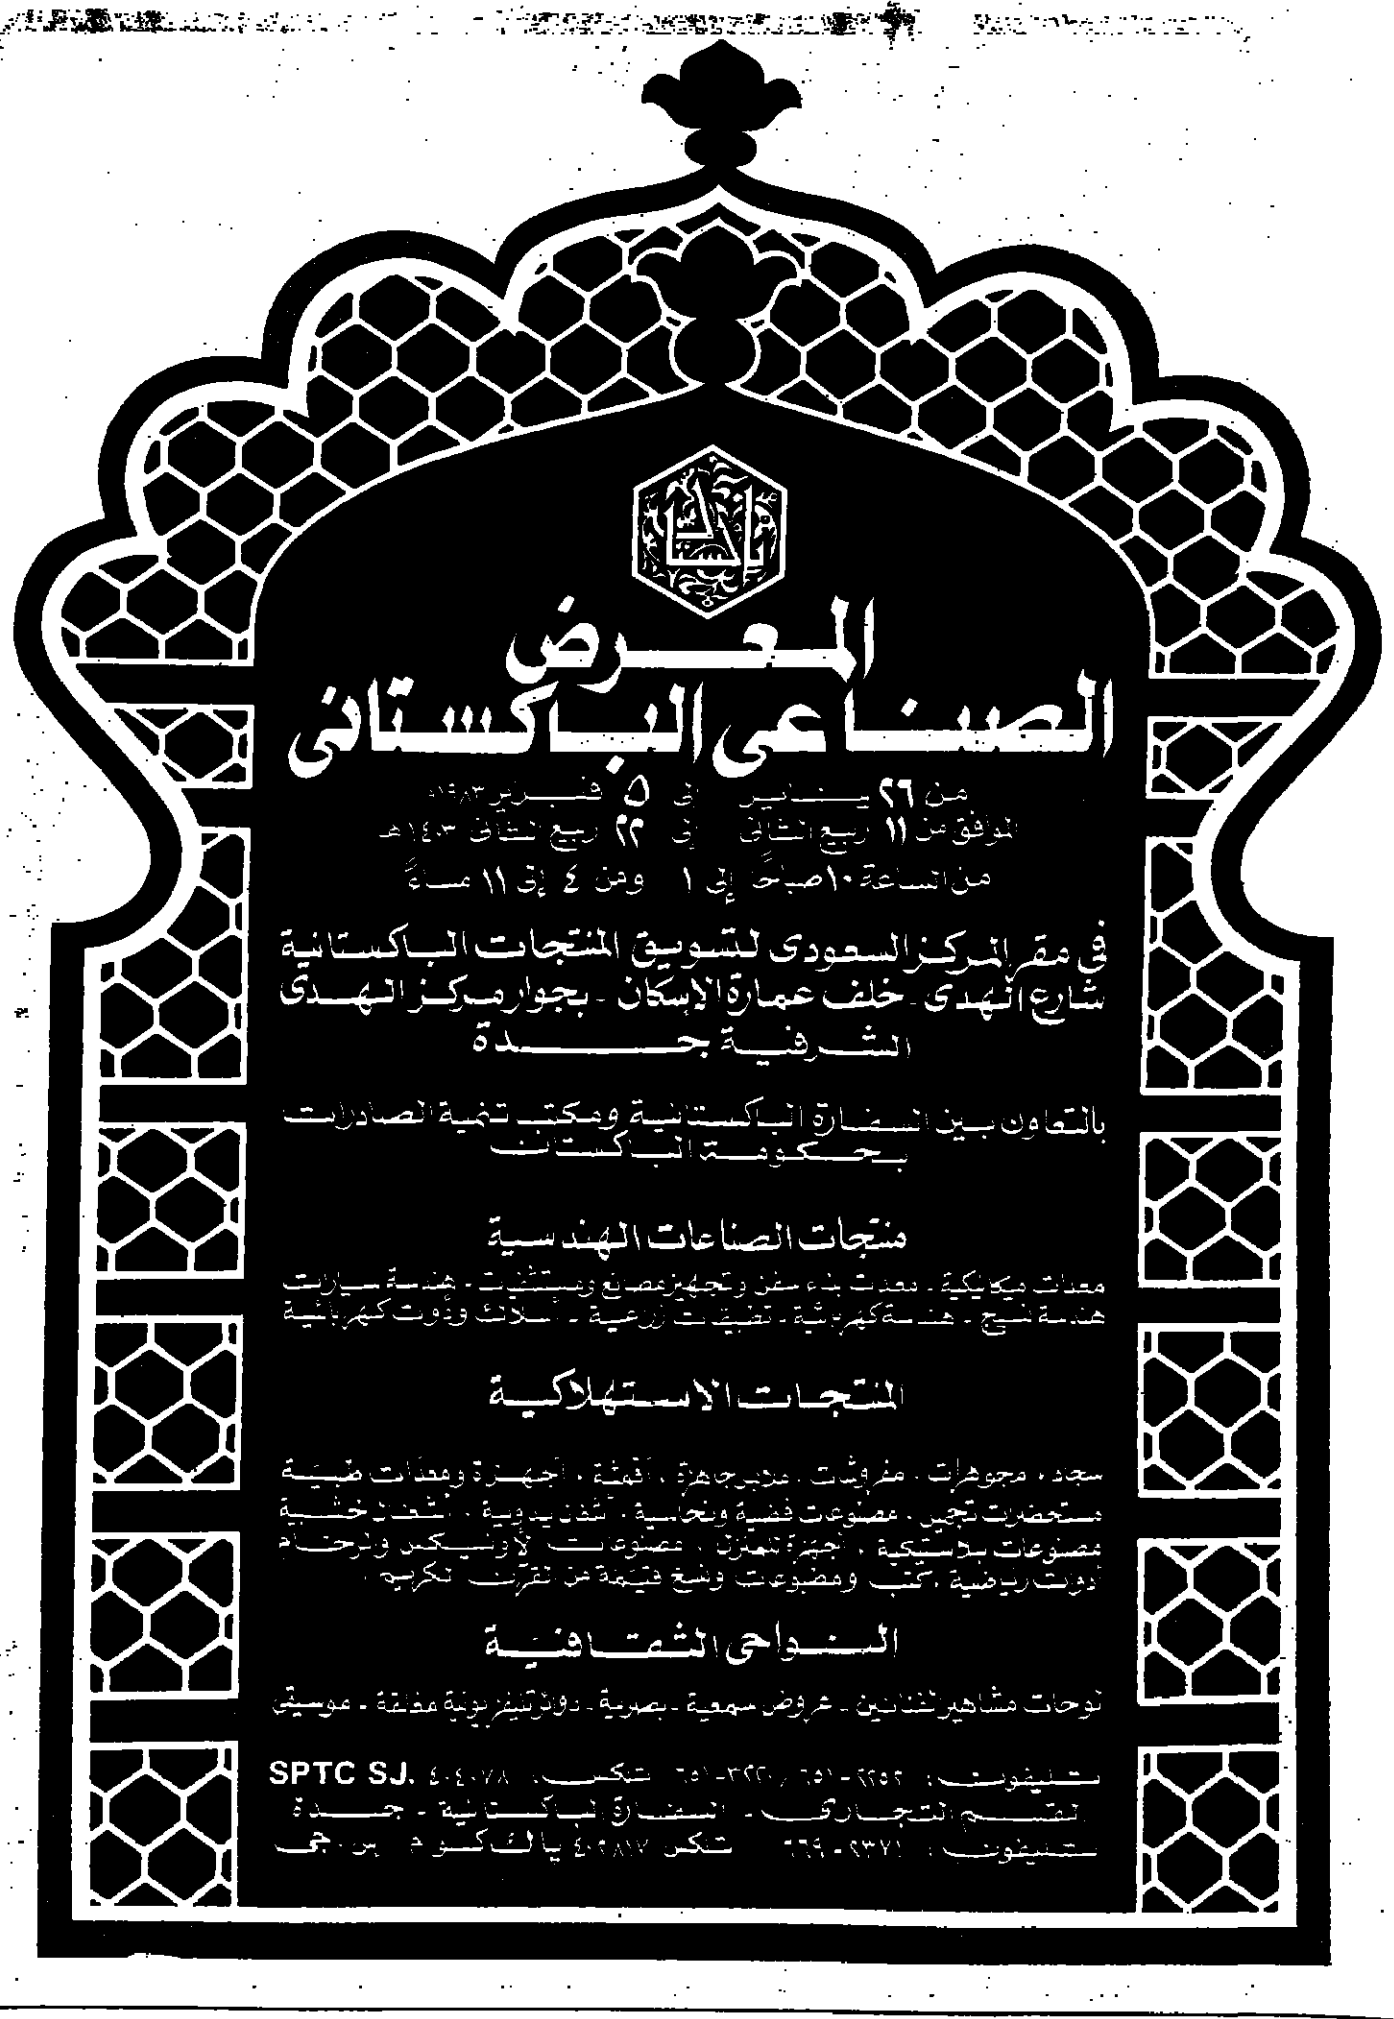 المعرض
الصناعى الباكستانى
من ٢٦ يناير إلى ٥ فبراير ١٩٨٣م
الموافق من ١١ ربيع الثانى إلى ٢٢ ربيع الثانى ١٤٠٣هـ
من الساعة ١٠ صباحًا إلى ١ ومن ٤ إلى ١١ مساءً
فى مقر المركز السعودى لتسويق المنتجات الباكستانية
شارع الهدى - خلف عمارة الإسكان - بجوار مركز الهدى
الشرفية جدة
بالتعاون بين السفارة الباكستانية ومكتب تنمية الصادرات
بحكومة الباكستان
منتجات الصناعات الهندسية
معدات ميكانيكية - معدات بناء سفن وتجهيز مصانع ومستشفيات - هندسة سيارات
هندسة نسيج - هندسة كهربائية - تطبيقات زرعية - أسلاك وأدوات كهربائية
المنتجات الاستهلاكية
سجاد، مجوهرات، مفروشات، ملابس جاهزة، أقمشة، أجهزة ومعدات طبية
مستحضرات تجميل، مصنوعات فضية ونحاسية، أشغال يدوية، أشغال خشبية
مصنوعات بلاستيكية، أجهزة للمنزل، مصنوعات الأونيكس والرخام
أدوات رياضية، كتب ومطبوعات ونسخ قيمة من القرآن الكريم.
النواحى الثقافية
لوحات مشاهير الفنانين - عروض سمعية - بصرية - دوائر تليفزيونية مغلقة - موسيقى
تليفون: ٦٥١-٢٢٥٢ / ٦٥١-٣٢٢٠ تلكس: ٤٠٤٠٧٨ SPTC SJ.
القسم التجارى - السفارة الباكستانية - جدة
تليفون: ٦٦٩-٢٣٧١ تلكس